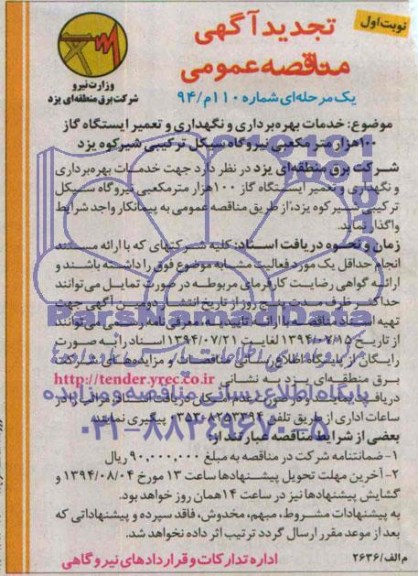 نوبت اول
تجدید آگهی
مناقصه عمومی
یک مرحله‌ای شماره ۱۱۰م/۹۴
وزارت نیرو
شرکت برق منطقه‌ای یزد
موضوع: خدمات بهره‌برداری و نگهداری و تعمیر ایستگاه گاز
۱۰۰هزار متر مکعبی نیروگاه سیکل ترکیبی شیرکوه یزد
شرکت برق منطقه‌ای یزد در نظر دارد جهت خدمات بهره‌برداری
و نگهداری و تعمیر ایستگاه گاز ۱۰۰هزار مترمکعبی نیروگاه سیکل
ترکیبی شیرکوه یزد، از طریق مناقصه عمومی به پیمانکار واجد شرایط
واگذار نماید.
زمان و نحوه دریافت اسناد: کلیه شرکتهای که با ارائه مستند
انجام حداقل یک مورد فعالیت مشابه موضوع فوق را داشته باشند و
ارائه گواهی رضایت کارفرمای مربوطه در صورت تمایل می‌توانند
حداکثر ظرف مدت پنج روز از تاریخ انتشار دومین آگهی جهت
تهیه اسناد مناقصه با ارائه تاییدیه معرفی‌نامه رسمی می‌توانند
از تاریخ ۱۳۹۴/۰۷/۱۵ لغایت ۱۳۹۴/۰۷/۲۱ اسناد را به صورت
رایگان از پایگاه اطلاع رسانی مناقصات و مزایده‌های شرکت
برق منطقه‌ای یزد به نشانی http://tender.yrec.co.ir
دریافت نمایند و در صورت عدم امکان دریافت اسناد مراتب را در
ساعات اداری از طریق تلفن ۰۳۵۳۸۲۵۳۳۹۴ پیگیری نمایند.
بعضی از شرایط مناقصه عبارتند از:
۱- ضمانتنامه شرکت در مناقصه به مبلغ ۹۰,۰۰۰,۰۰۰ ریال
۲- آخرین مهلت تحویل پیشنهادها ساعت ۱۳ مورخ ۱۳۹۴/۰۸/۰۴ و
گشایش پیشنهادها نیز در ساعت ۱۴ همان روز خواهد بود.
به پیشنهادات مشروط، مبهم، مخدوش، فاقد سپرده و پیشنهاداتی که
بعد از موعد مقرر ارسال گردد ترتیب اثر داده نخواهد شد.
م الف/۲۶۳۶
اداره تدارکات و قراردادهای نیروگاهی
ParsNamadData
پایگاه اطلاع رسانی مناقصه و مزایده
۰۲۱-۸۸۳۴۹۶۷۰-۵